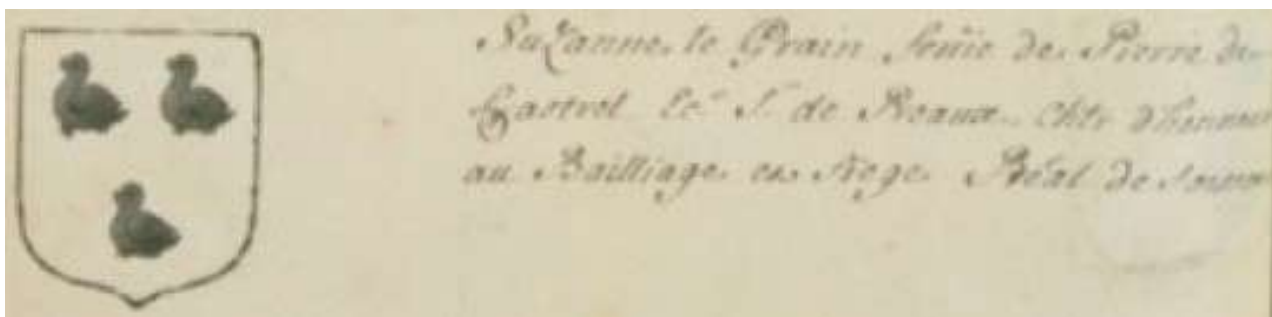 Suzanne le Grain femme de Pierre de
Castret Ec. Sr. de Reaux. Chlr d'honneur
au Bailliage et Siege Préal de